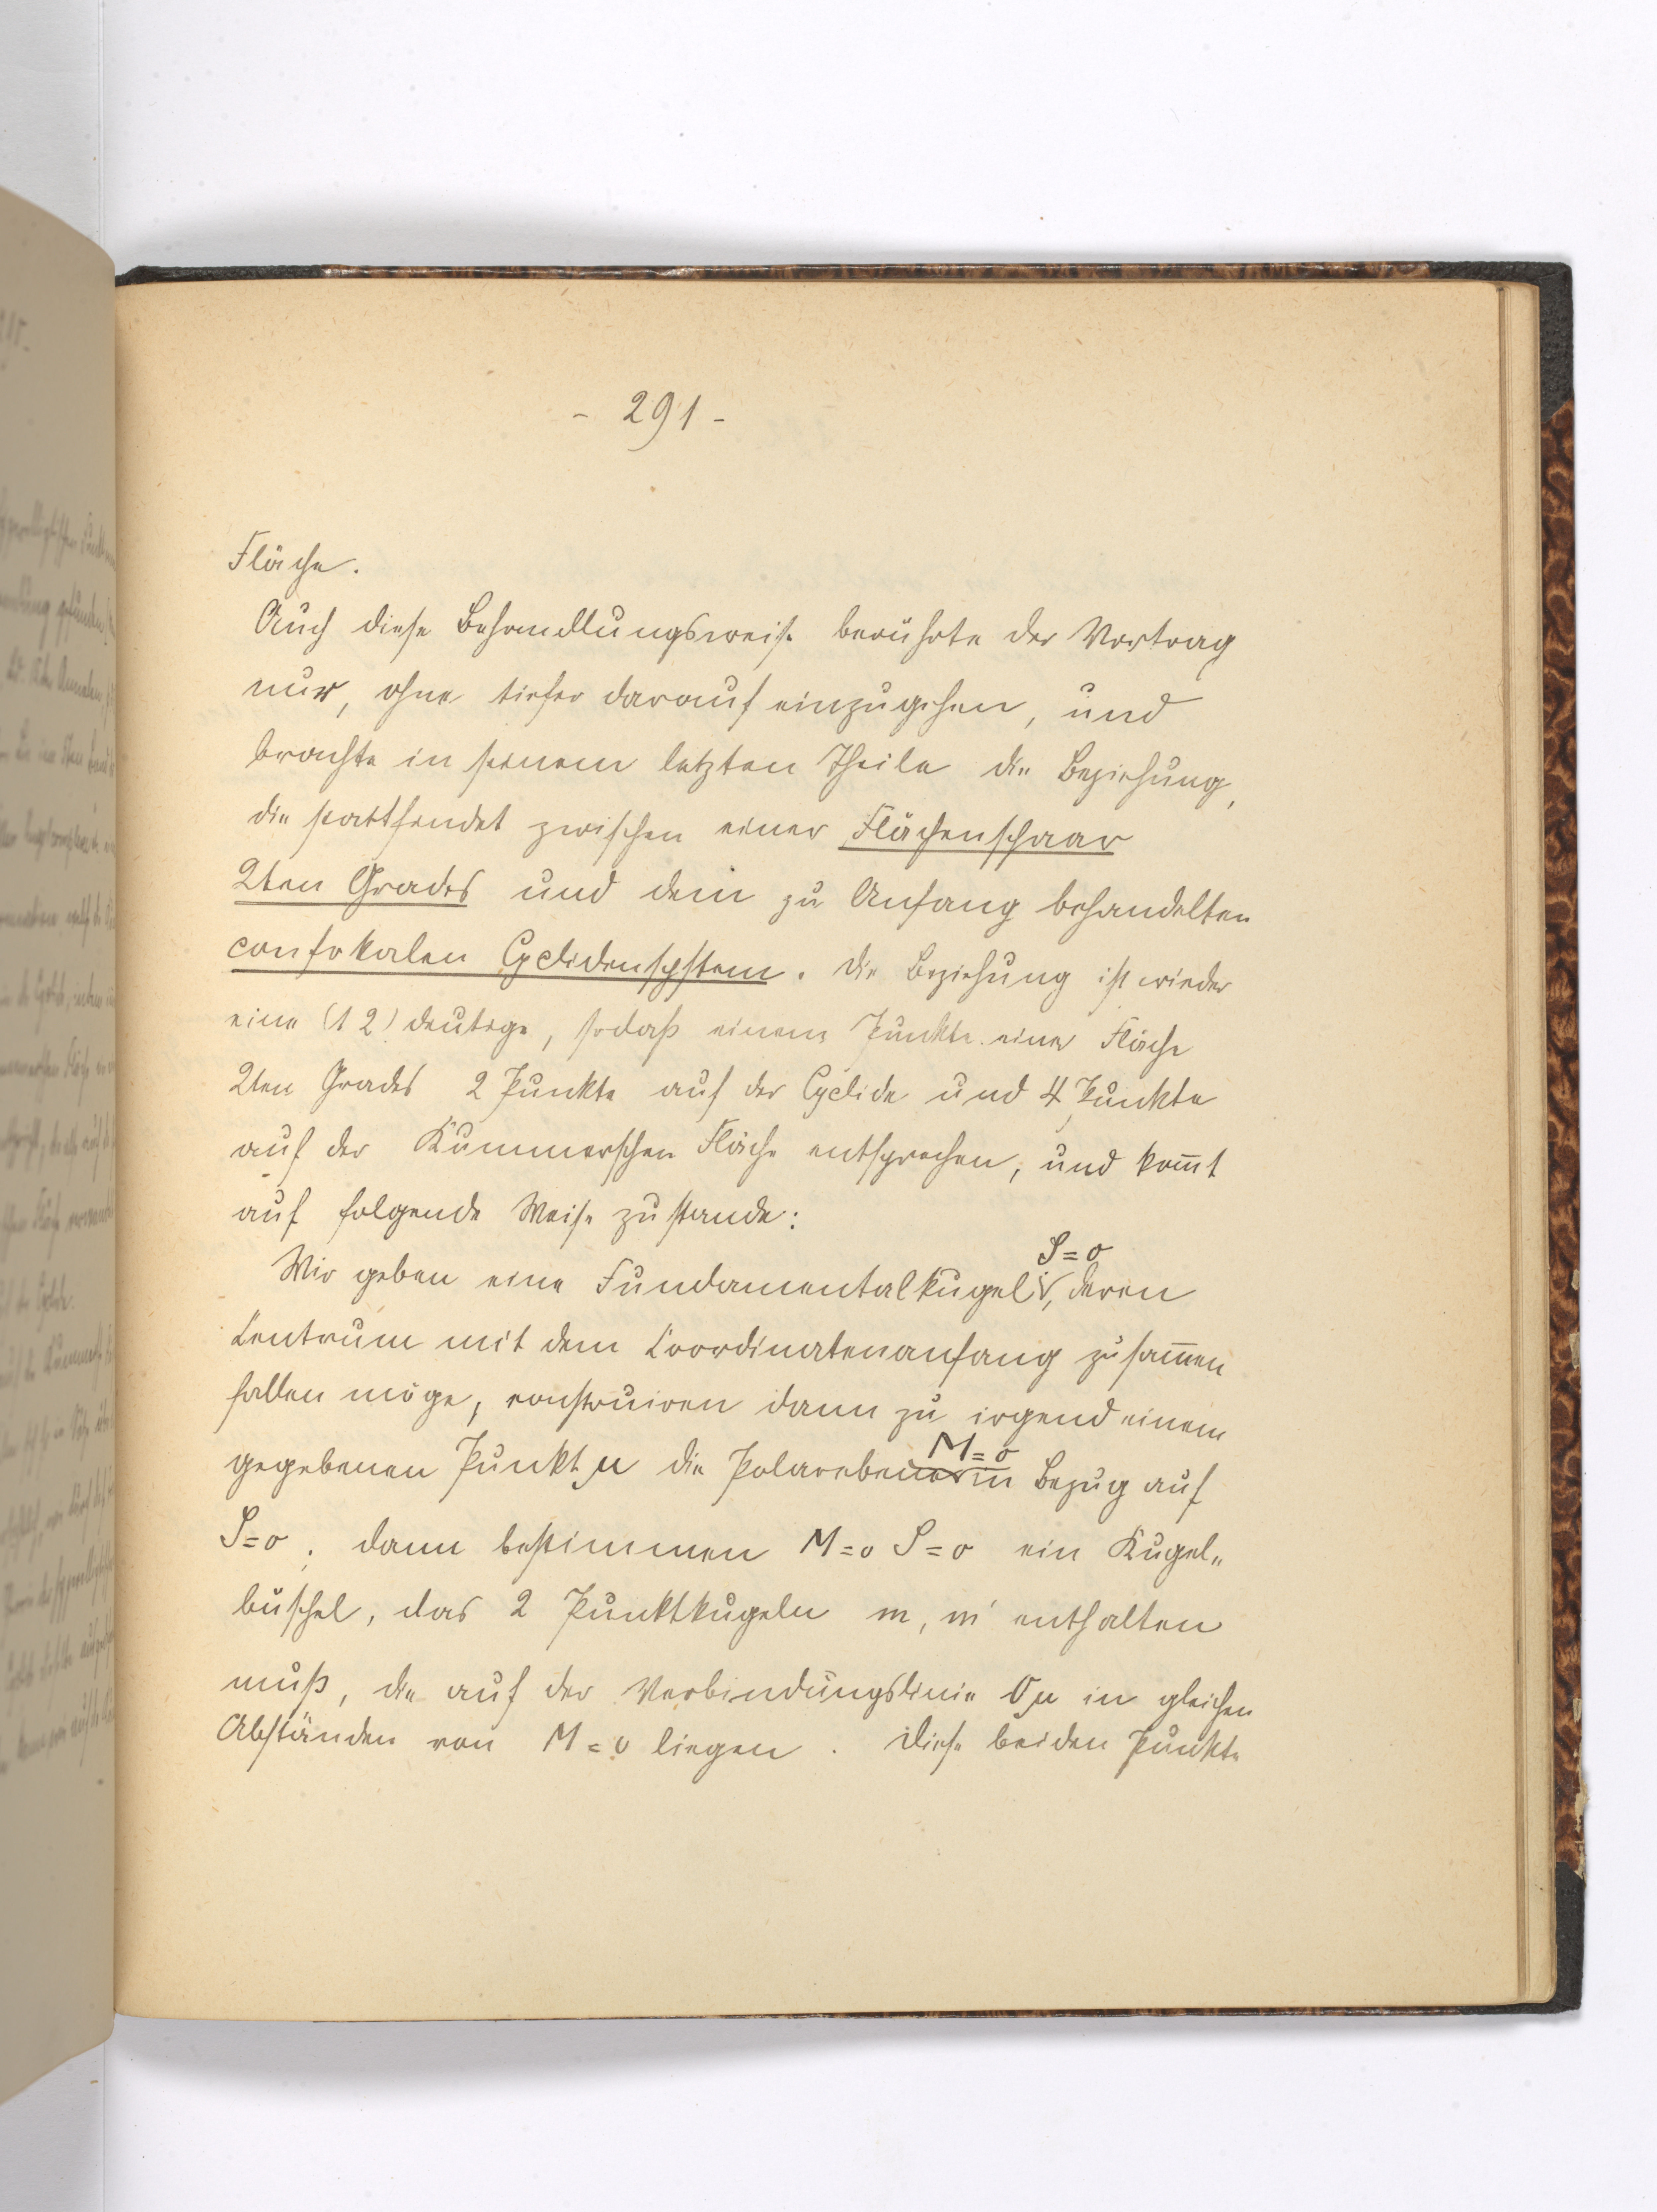 - 291 -
Fläche.
Auch diese Behandlungsweise berührte der Vortrag
nur, ohne tiefer darauf einzugehen, und
brachte in seinem letzten Theile die Beziehung,
die stattfindet zwischen einer Flächenschaar
2ten Grades und dem zu Anfang behandelten
confokalen Cyclidensystem. Die Beziehung ist wieder
eine (1 2) deutige, sodaß einem Punkte einer Fläche
2ten Grades 2 Punkte auf der Cyclide und 4 Punkte
auf der Kummerschen Fläche entsprechen, und kom̅t
auf folgende Weise zustande:
S=0
Wir geben eine Fundamentalkugel, deren
Centrum mit dem Coordinatenanfang zusam̅en
fallen möge, construiren dann zu irgend einem
M=0
gegebenen Punkt μ die Polarebene in Bezug auf
S=0; dann bestimmen M=0 S=0 ein Kugel„
büschel, das 2 Punktkugeln m, m' enthalten
muß, die auf der Verbindungslinie Oμ in gleichen
Abständen von M=0 liegen. Diese beiden Punkte